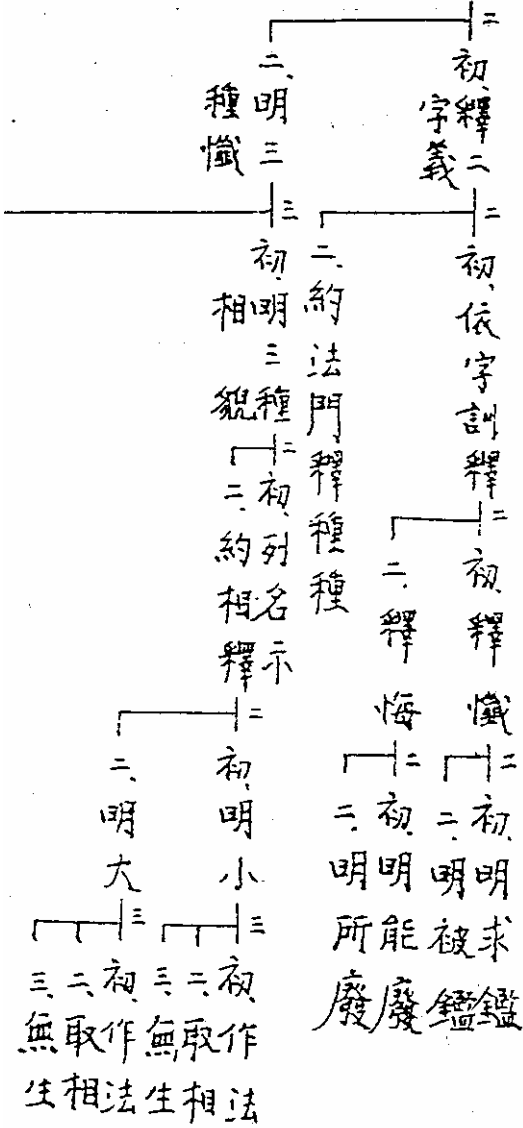 二
初、釋字義二
二
初、依字訓釋
二
初、釋懺
二
初、明求鑑
二、明被鑑
二、釋悔
二
初、明能廢
二、明所廢
二、約法門釋種種
二、明三種懺
三
初、明三種相貌
二
初、列名示
二、約相釋
二
初、明小
三
初、作法
二、取相
三、無生
二、明大
三
初、作法
二、取相
三、無生